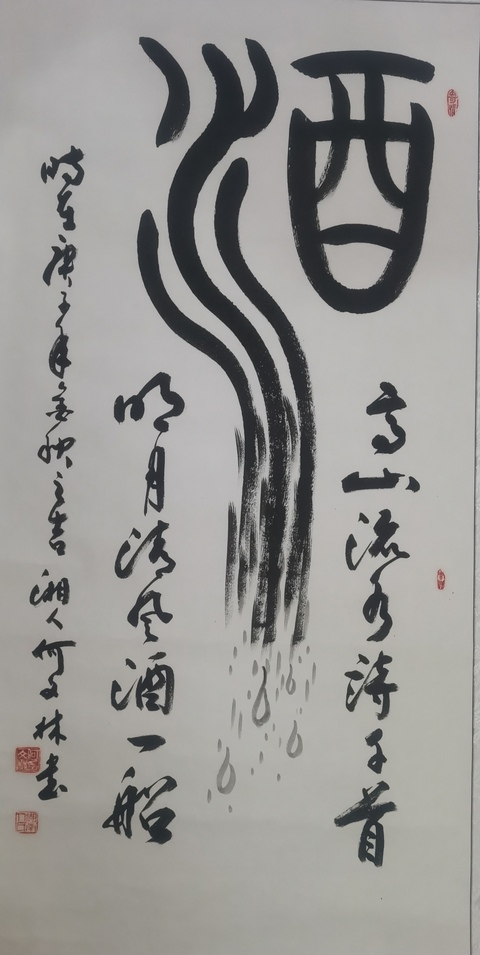 酒
高山流水诗千首
明月清风酒一船
时在庚子年金秋之吉 湘人何文林书